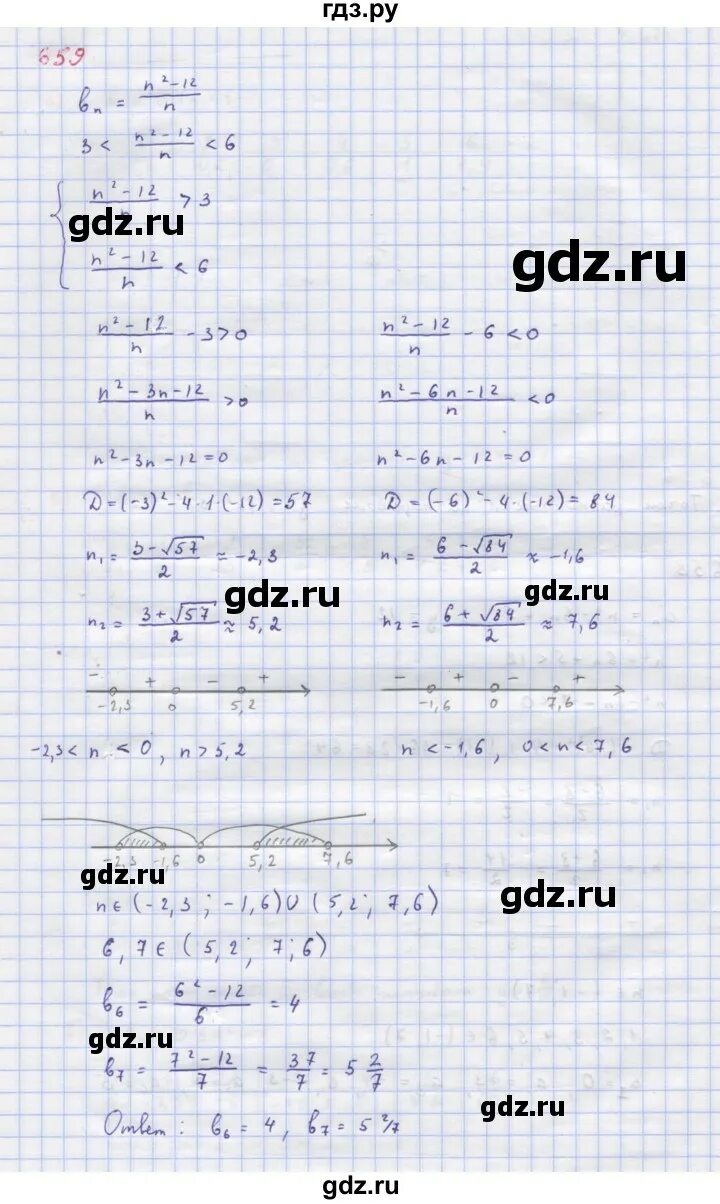 гдз.ру
659
bₙ = (n² - 12)/n
3 < (n² - 12)/n < 6
{ (n² - 12)/n > 3
gdz.ru
gdz.ru
(n² - 12)/n < 6
(n² - 12)/n - 3 > 0    (n² - 12)/n - 6 < 0
(n² - 3n - 12)/n > 0    (n² - 6n - 12)/n < 0
n² - 3n - 12 = 0    n² - 6n - 12 = 0
D = (-3)² - 4·1·(-12) = 57    D = (-6)² - 4·(-12) = 84
n₁ = (3 - √57)/2 ≈ -2,3    n₁ = (6 - √84)/2 ≈ -1,6
gdz.ru    gdz.ru
n₂ = (3 + √57)/2 ≈ 5,2    n₂ = (6 + √84)/2 ≈ 7,6
- + - +    - + - +
-2,3 0 5,2    -1,6 0 7,6
-2,3 < n < 0, n > 5,2    n < -1,6, 0 < n < 7,6
-2,3 -1,6 0 5,2 7,6
gdz.ru
n ∈ (-2,3; -1,6) ∪ (5,2; 7,6)
gdz.ru
6, 7 ∈ (5,2; 7;6)
b₆ = (6² - 12)/6 = 4
gdz.ru
b₇ = (7² - 12)/7 = 37/7 = 5 2/7
gdz.ru
Ответ: b₆ = 4, b₇ = 5 2/7
gdz.ru